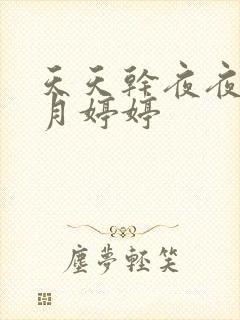 天天幹夜夜
月婷婷
塵夢輕笑